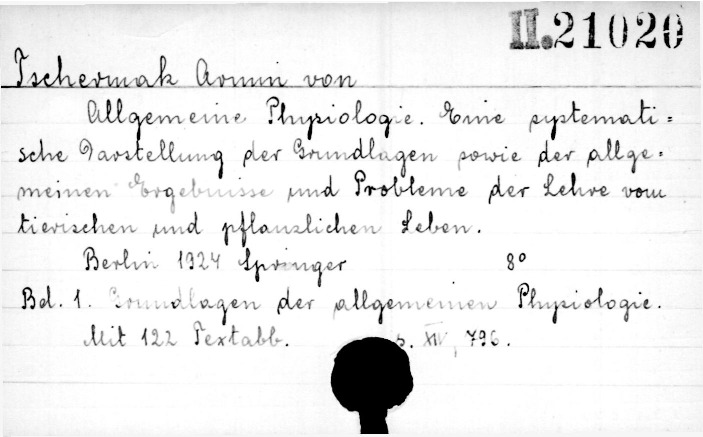 II.21020
Tschermak Armin von
Allgemeine Physiologie. Eine systemati=
sche Darstellung der Grundlagen sowie der allge=
meinen Ergebnisse und Probleme der Lehre vom
tierischen und pflanzlichen Leben.
Berlin 1924 Springer 8°
Bd. 1. Grundlagen der allgemeinen Physiologie.
Mit 122 Textabb. s. XIV, 796.